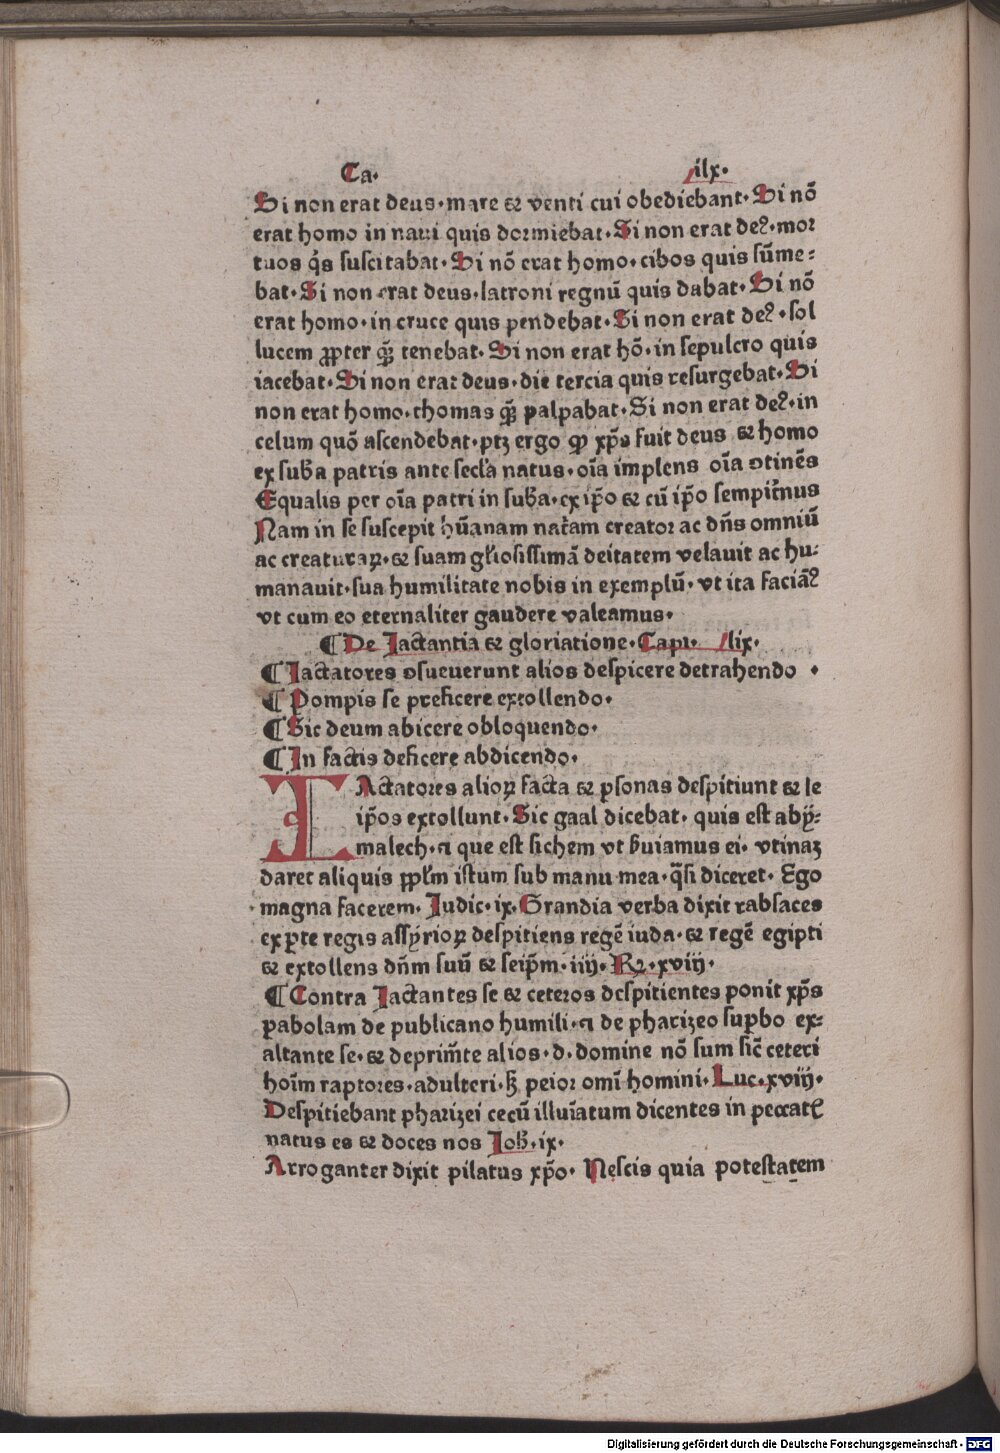 Ca. lix.
Si non erat deus. mare ⁊ venti cui obediebant. Si nō
erat homo in naui quis dormiebat. Si non erat deꝰ. mor
tuos q̇s suscitabat. Si nō erat homo. cibos quis sūme⸗
bat. Si non erat deus. latroni regnū quis dabat. Si nō
erat homo. in cruce quis pendebat. Si non erat deꝰ. sol
lucem ꝓpter quē tenebat. Si non erat hō. in sepulcro quis
iacebat. Si non erat deus. die tercia quis resurgebat. Si
non erat homo. thomas quē palpabat. Si non erat deꝰ. in
celum quō ascendebat. ptꝫ ergo ꝙ xp̄s fuit deus ⁊ homo
ex sub̄a patris ante secl'a natus. oīa implens oīa ꝯtinēs
Equalis per oīa patri in sub̄a. ex ip̄o ⁊ cū ip̄o sempit̄nus
Nam in se suscepit hūanam nat̄am creator ac dn̄s omniū
ac creaturaꝝ. ⁊ suam gl'iosissimā deitatem velauit ac hu⸗
manauit. sua humilitate nobis in exemplū. vt ita faciāꝰ
vt cum eo eternaliter gaudere valeamus.
¶ De Jactantia ⁊ gloriatione. Capi. lix.
¶ Jactatores ꝯsueuerunt alios despicere detrahendo .
¶ Pompis se preficere extollendo.
¶ Sic deum abicere obloquendo.
¶ In factis deficere abdicendo.
IActatores alioꝝ facta ⁊ ꝑsonas despitiunt ⁊ se
ip̄os extollunt. Sic gaal dicebat. quis est abÿ⸗
malech. ⁊ que est sichem vt ẜuiamus ei. vtinaꝫ
daret aliquis ppl̄m istum sub manu mea. q̄si diceret. Ego
magna facerem. Judic. ix. Grandia verba dixit rabsaces
ex ꝑte regis assÿrioꝝ despitiens regē iuda. ⁊ regē egipti
⁊ extollens dn̄m suū ⁊ seip̄m. iiij. Rꝫ. xviij.
¶ Contra Jactantes se ⁊ ceteros despitientes ponit xp̄s
ꝑabolam de publicano humili. ⁊ de pharizeo suꝑbo ex⸗
altante se. ⁊ deprim̄te alios. d. domine nō sum sic̄ ceteri
hoīm raptores. adulteri. ẜꝫ peior omī homini. Luc. xviij.
Despitiebant pharizei cecū illuīatum dicentes in peccatꝭ
natus es ⁊ doces nos Joh̄. ix.
Arroganter dixit pilatus xp̄o. Nescis quia potestatem
Digitalisierung gefördert durch die Deutsche Forschungsgemeinschaft - DFG